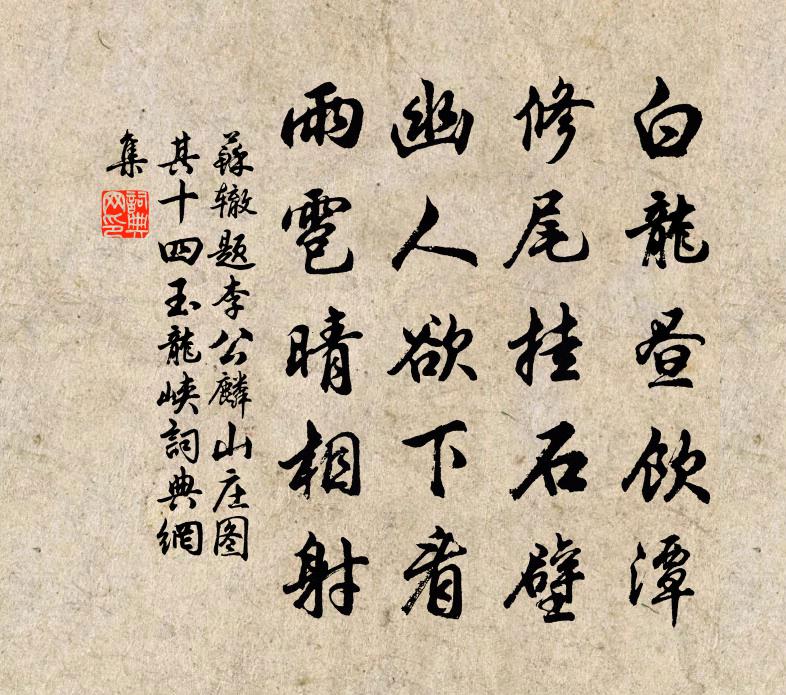 白龍晝飲潭
修尾挂石壁
幽人欲下看
雨雹晴相射
蘇辙题李公麟山庄图
其十四玉龍峽詞典網
集
詞典
网印